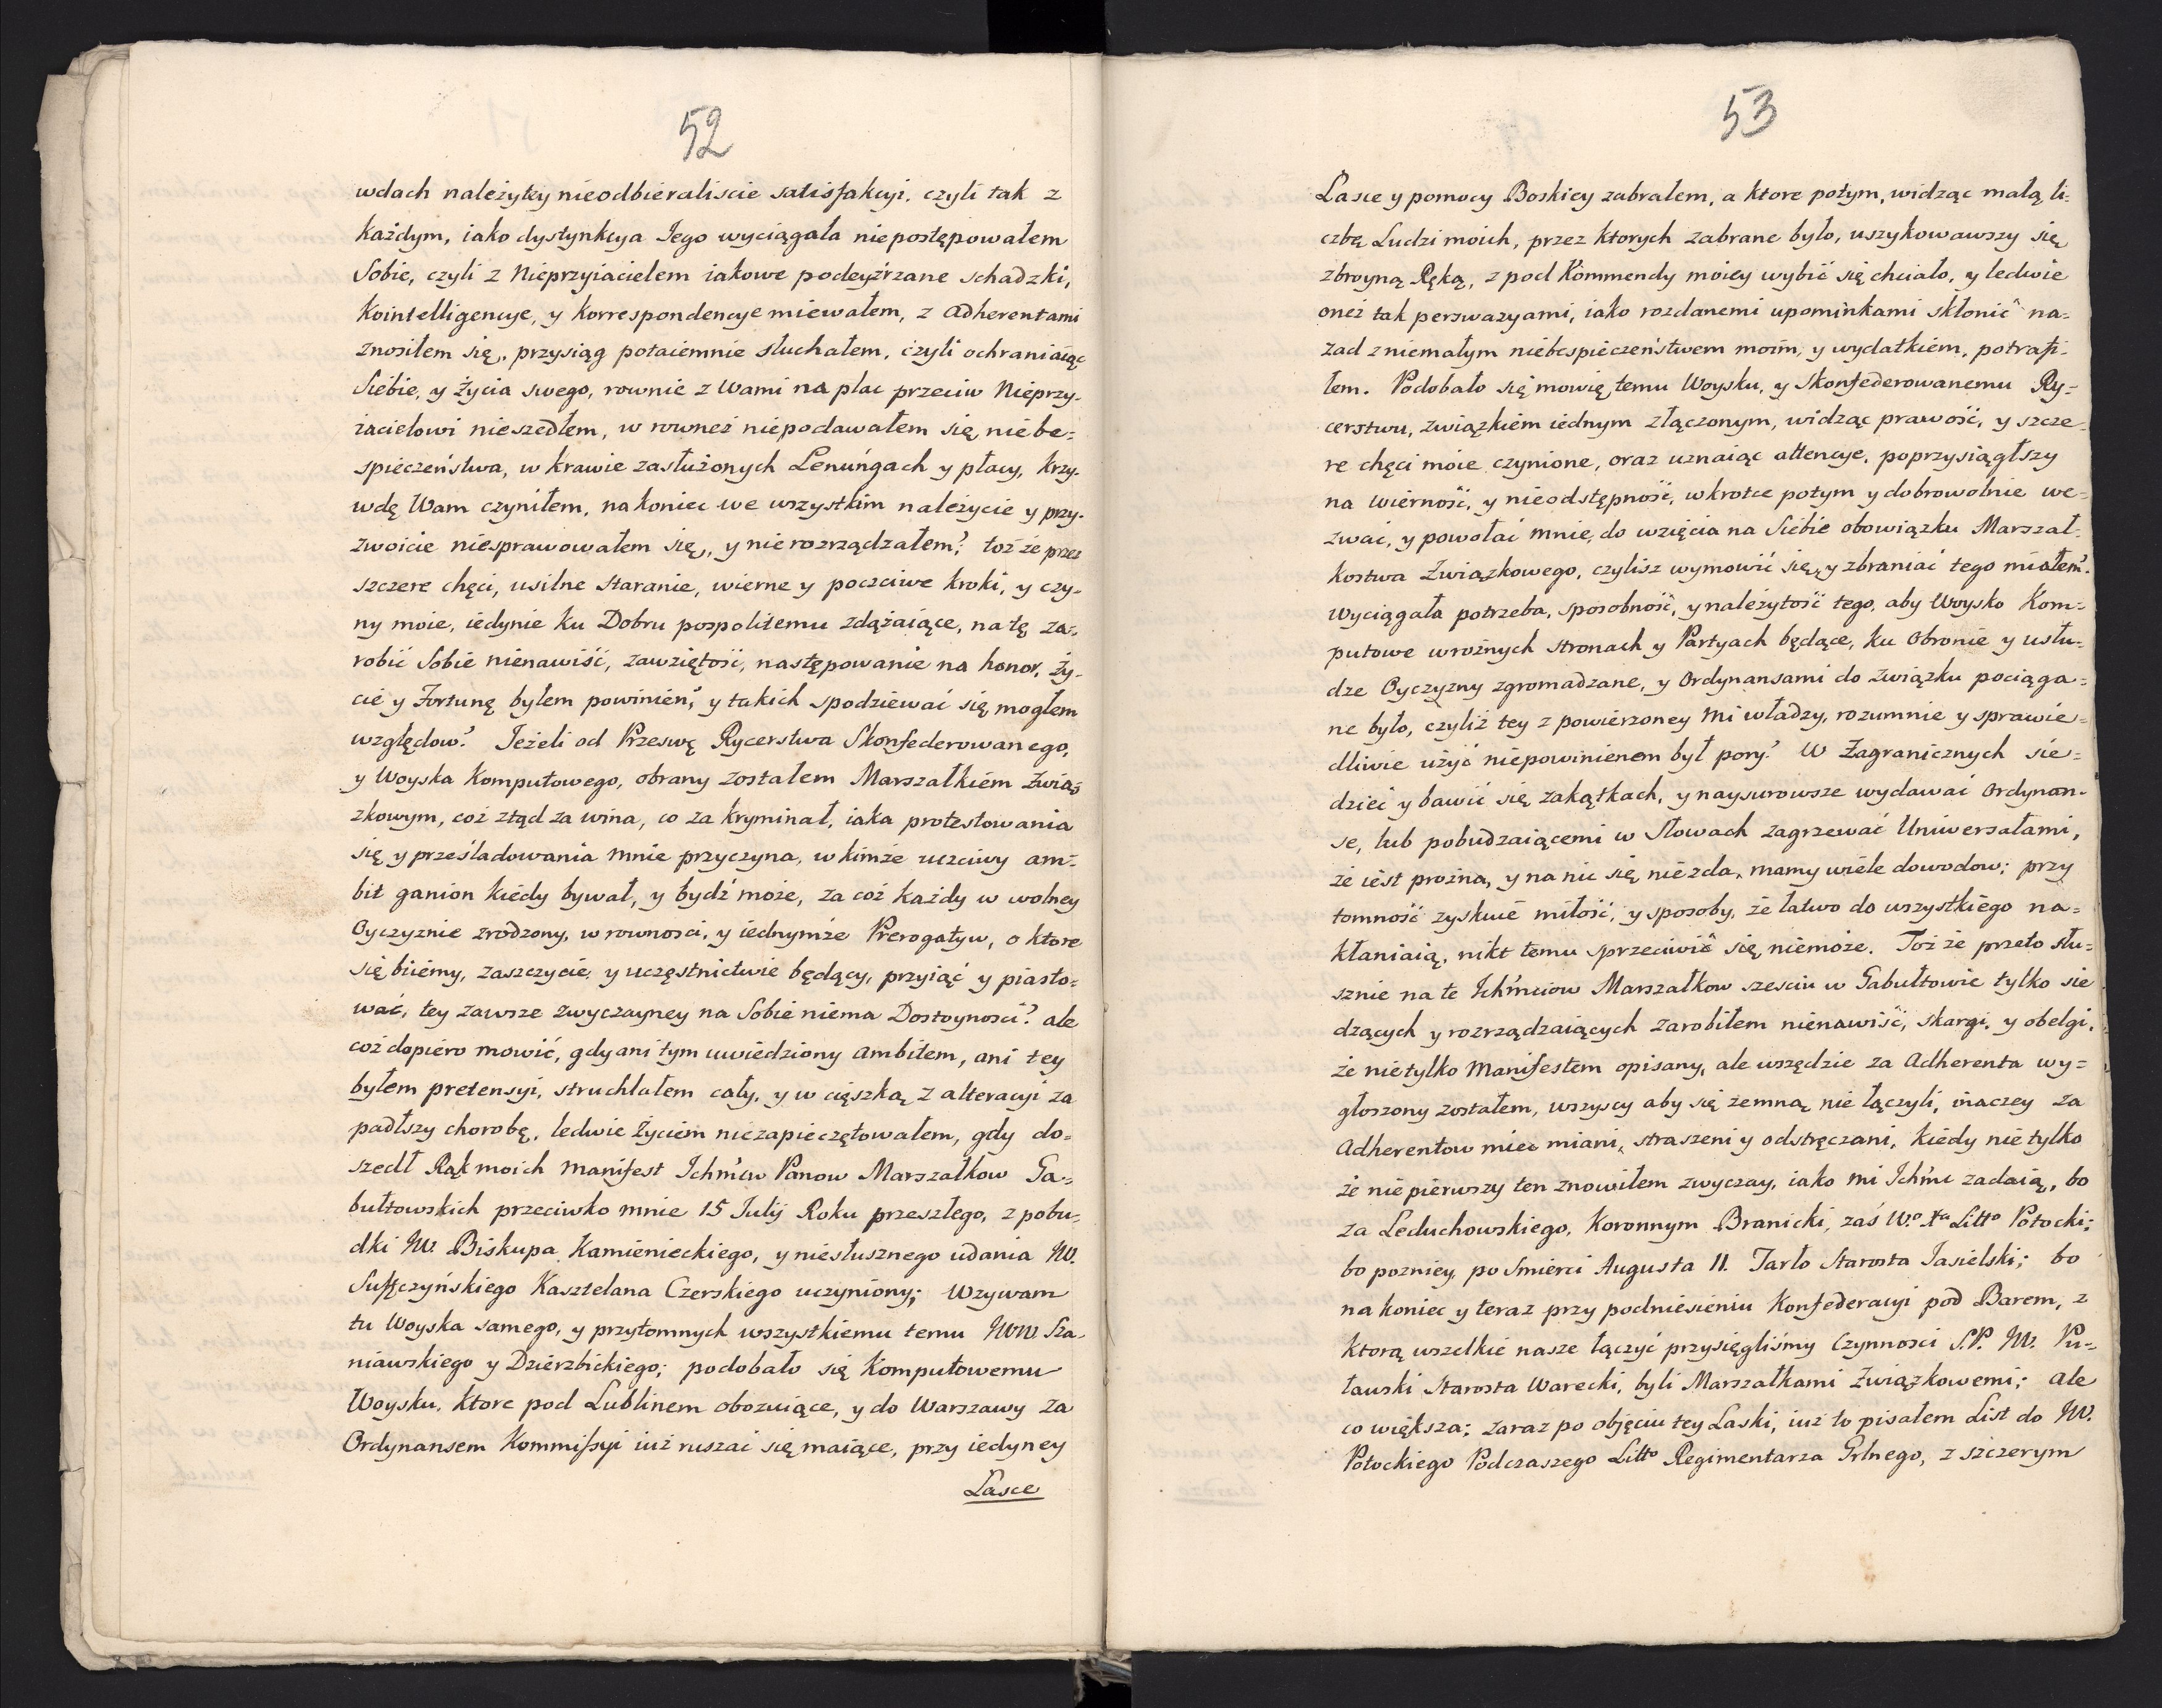 52
wdach należytey nieodbieraliscie satisfakcyi, czyli tak z
każdym, iako dystynkcya Jego wyciągała niepostępowałem
Sobie, czyli z Nieprzyiacielem iakowe podeyźrzane schadzki,
Kointelligencye, y Korrespondencye miewałem, z Adherentami
znosiłem się, przysiąg potaiemnie słuchałem, czyli ochraniaiąc
Siebie, y życia swego, rownie z Wami na plac przeciw Nieprzy-
iacielowi nieszedłem, w rowneż niepodawałem się niebe=
spieczeństwa, w krawie zasłużonych Lenungach y płacy, krzy-
wdę Wam czyniłem, nakoniec we wszystkim należycie y przy-
zwoicie niesprawowałem się, y nierozrządzałem? toż że przez
szczere chęci, usilne staranie, wierne y poczciwe kroki, y czy-
ny moie, iedynie ku Dobru pospolitemu zdążaiące, na tę za-
robić Sobie nienawiść, zawziętość, następowanie na honor, ży-
cie y Fortunę byłem powinien, y takich spodziewać się mogłem
względow? Jeżeli od Przeswę Rycerstwa Skonfederowanego,
y Woyska Komputowego, obrany zostałem Marszałkiem Zwią=
zkowym, coż ztąd za wina, co za kryminał, iaka protestowania
się y prześladowania mnie przyczyna, w kimże uczciwy am-
bit ganion kiedy bywał, y bydź może, za coż każdy w wolney
Oyczyznie zrodzony, w rownosci, y iednymże Prerogatyw, o ktore
się biiemy, zaszczycie, y uczęstnictwie będący, przyiąć y piasto=
wać, tey zawsze zwyczayney na Sobie niema Dostoynosci? ale
coż dopiero mowić, gdy ani tym uwiedziony ambitem, ani tey
byłem pretensyi, struchlałem cały, y w cięszką z alteracyi za
padłszy chorobę, ledwie życiem niezapieczętowałem, gdy do=
szedł Rąk moich Manifest Ichmćw Panow Marszałkow Ga=
bułtowskich przeciwko mnie 15 Julij Roku przeszłego, z pobu=
dki JW. Biskupa Kamienieckiego, y niesłusznego udania JW.
Suffczyńskiego Kasztelana Czerskiego uczyniony; Wzywam
tu Woyska samego, y przytomnych wszystkiemu temu JWW. Sza-
niawskiego y Dzierzbickiego; podobało się Komputowemu
Woysku, ktore pod Lublinem obozuiące, y do Warszawy za
Ordynansem Kommissyi iuż ruszać się maiące, przy iedyney
Lasce
53
Lasce y pomocy Boskiey zabrałem, a ktore potym, widząc małą li=
czbę Ludzi moich, przez ktorych zabrane było, uszykowawszy się
zbroyną Ręką, z pod Kommendy moiey wybić się chciało, y ledwie
oneż tak perswazyami, iako rozdanemi upominkami skłonić na=
zad z niemałym niebespieczeństwem moim, y wydatkiem, potrafi-
łem. Podobało się mowię temu Woysku, y Skonfederowanemu Ry=
cerstwu, związkiem iednym złączonym, widząc prawość, y szcze-
re chęci moie czynione, oraz uznaiąc attencye, poprzysiągłszy
na wierność, y nieodstępność, wkrotce potym y dobrowolnie we-
zwać, y powołać mnie, do wzięcia na Siebie obowiązku Marszał-
kostwa Związkowego, czylisz wymowić się, y zbraniać tego miałem?
Wyciągała potrzeba, sposobność, y należytość tego, aby Woysko Kom=
putowe w rożnych stronach y Partyach będące, ku Obronie y usłu=
dze Oyczyzny zgromadzane, y Ordynansami do związku pociąga=
ne było, czyliż tey z powierzoney mi władzy, rozumnie y sprawie=
dliwie użyć niepowinienem był pory? W Zagranicznych sie=
dzieć y bawić się zakątkach, y naysurowsze wydawać Ordynan-
se, lub pobudzaiącemi w Słowach zagrzewać Uniwersałami,
że iest prożna, y na nic się nie zda, mamy wiele dowodow; przy
tomność zyskuie miłość, y sposoby, że łatwo do wszystkiego na=
kłaniaią, nikt temu sprzeciwić się niemoże. Toż że przeto słu=
sznie na te Ichmciow Marszałkow szesciu w Gabułtowie tylko sie
dzących y rozrządzaiących zarobiłem nienawiść, skargi, y obelgi,
że nietylko Manifestem opisany, ale wszędzie za Adherenta wy=
głoszony zostałem, wszyscy aby się zemną nie łączyli, inaczey za
Adherentow mieć miani, straszeni y odstręczani, kiedy nietylko
że niepierwszy ten znowiłem zwyczay, iako mi Ichmć zadaią, bo
za Leduchowskiego, Koronnym Branicki, zaś W.º Xa Littº Potocki;
bo pozniey, po Smierci Augusta II. Tarło Starosta Jasielski; bo
na koniec y teraz przy podniesieniu Konfederacyi pod Barem, z
ktorą wszelkie nasze łączyć przysięgliśmy Czynnosci S.P. JW. Pu-
ławski Starosta Warecki, byli Marszałkami Związkowemi; ale
co większa; zaraz po objęciu tey Laski, iuż to pisałem List do JW.
Potockiego Podczaszego Littº Regimentarza Grlnego, z szczerym